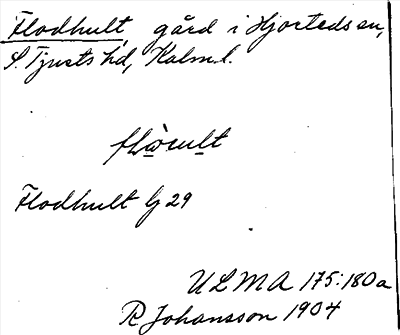 Flodhult, gård i Hjorteds sn,
S. Tjusts hd, Kalm. l.
Flodhult Lj 29
ULMA 175:180a
R Johansson 1904